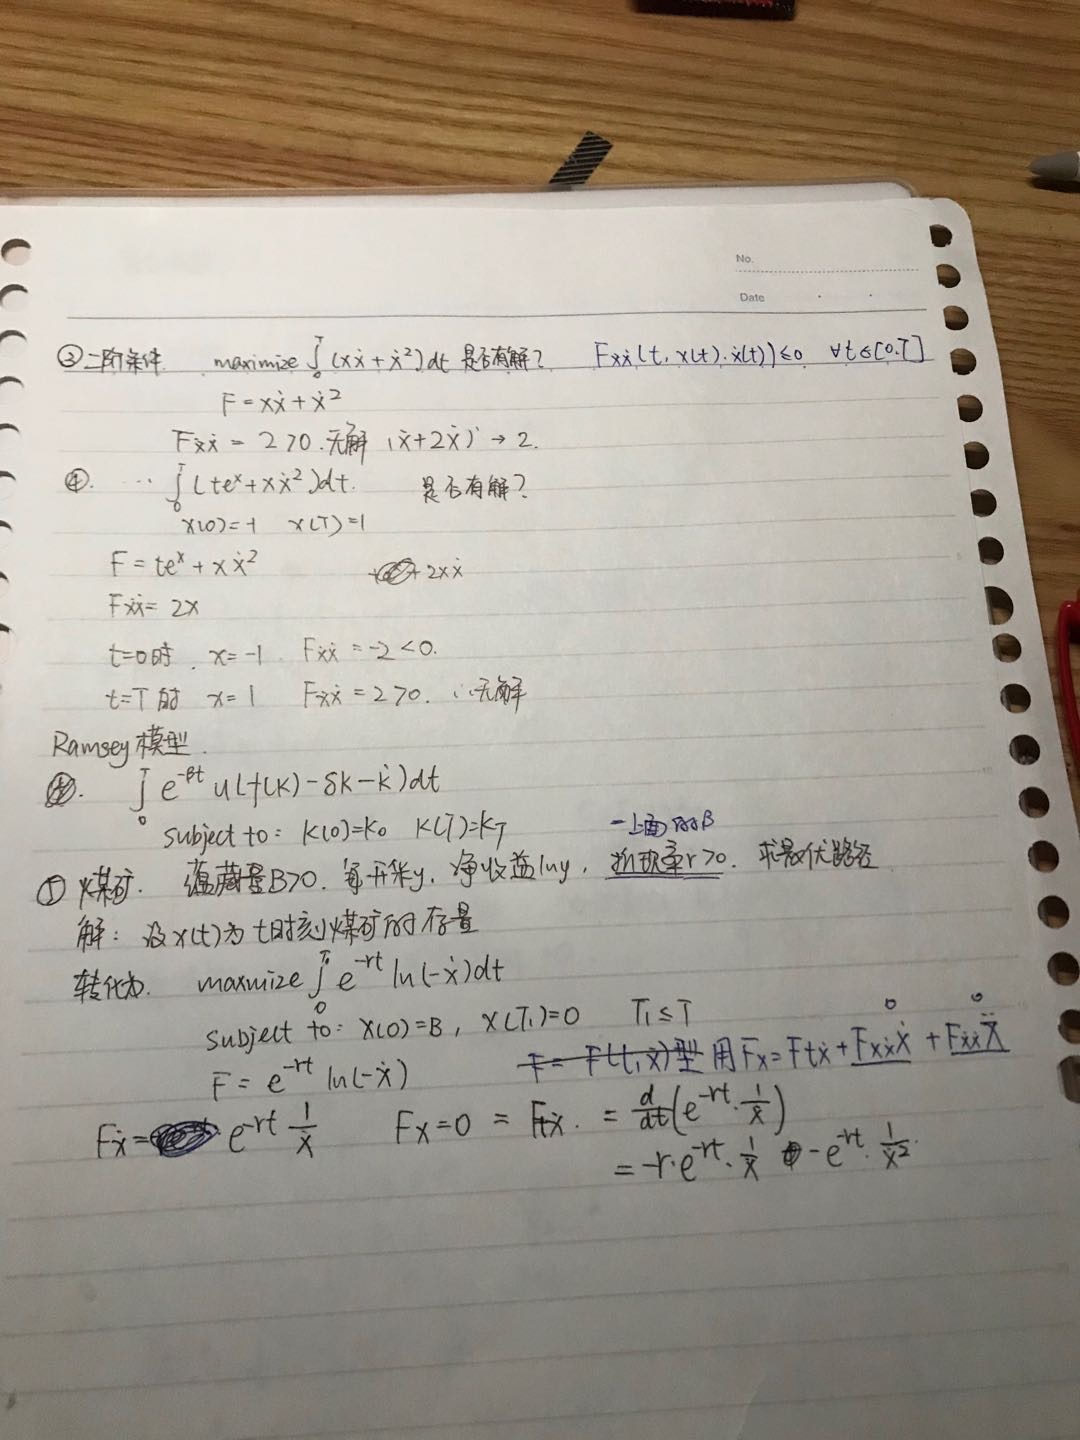 No.
Date
③二阶条件. maximize ∫₀ᵀ (xẋ + ẋ²)dt 是否有解? Fẋẋ(t, x(t), ẋ(t)) ≤ 0 ∀t∈[0.T]
F = xẋ + ẋ²
Fẋẋ = 2 > 0. 无解 (ẋ+2ẋ)' → 2.
④. ·· ∫₀ᵀ (teˣ + xẋ²)dt. 是否有解?
x(0) = -1 x(T) = 1
F = teˣ + xẋ² + 2xẋ
Fẋẋ = 2x
t=0时. x = -1. Fẋẋ = -2 < 0.
t=T时 x = 1 Fẋẋ = 2 > 0. ∴无解
Ramsey模型.
∫₀ᵀ e^(-βt) u(f(k) - δk - k̇)dt
subject to: k(0)=k₀ k(T)=k_T
一上面的β
⑤ 煤矿. 蕴藏量B>0. 每开采y, 净收益lny, 折现率r>0. 求最优路径
解: 设x(t)为t时刻煤矿的存量
转化为. maxmize ∫₀ᵀ e^(-rt) ln(-ẋ)dt
subject to: x(0)=B, x(T₁)=0 T₁≤T
F = e^(-rt) ln(-ẋ) F = F(t,ẋ)型 用Fx = Ftẋ + Fxẋ ẋ + Fẋẋ ẍ
0 0
Fẋ = e^(-rt) 1/ẋ Fx = 0 = Ftẋ. = d/dt (e^(-rt)·1/ẋ)
= -r·e^(-rt)·1/ẋ - e^(-rt)·1/ẋ²